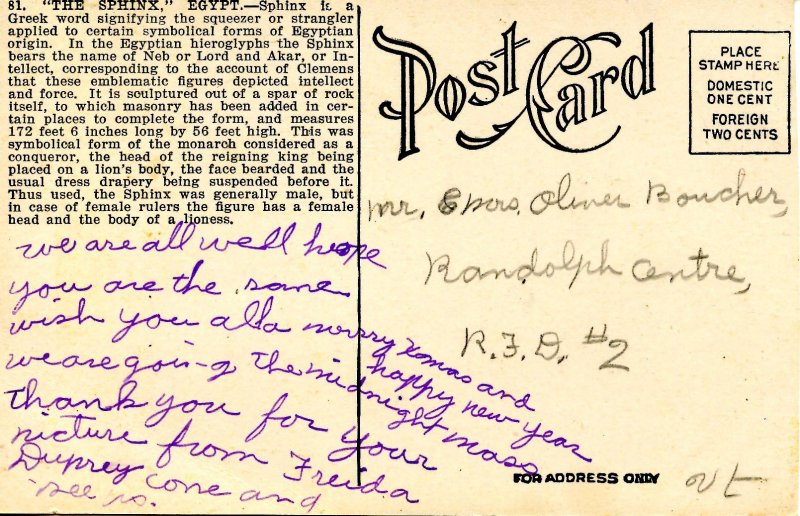 81. "THE SPHINX," EGYPT.—Sphinx is a
Greek word signifying the squeezer or strangler
applied to certain symbolical forms of Egyptian
origin. In the Egyptian hieroglyphs the Sphinx
bears the name of Neb or Lord and Akar, or In-
tellect, corresponding to the account of Clemens
that these emblematic figures depicted intellect
and force. It is sculptured out of a spar of rock
itself, to which masonry has been added in cer-
tain places to complete the form, and measures
172 feet 6 inches long by 56 feet high. This was
symbolical form of the monarch considered as a
conqueror, the head of the reigning king being
placed on a lion's body, the face bearded and the
usual dress drapery being suspended before it.
Thus used, the Sphinx was generally male, but
in case of female rulers the figure has a female
head and the body of a lioness.
we are all well hope
you are the same
wish you all a merry Xmas and
happy new year
we are goin-g the midnight mass
thank you for your
picture from Freida
Duprey
come and
see us.
Post Card
PLACE
STAMP HERE
DOMESTIC
ONE CENT
FOREIGN
TWO CENTS
Mr. & Mrs. Oliver Boucher,
Randolph Centre,
R.F.D. #2
Vt
FOR ADDRESS ONLY